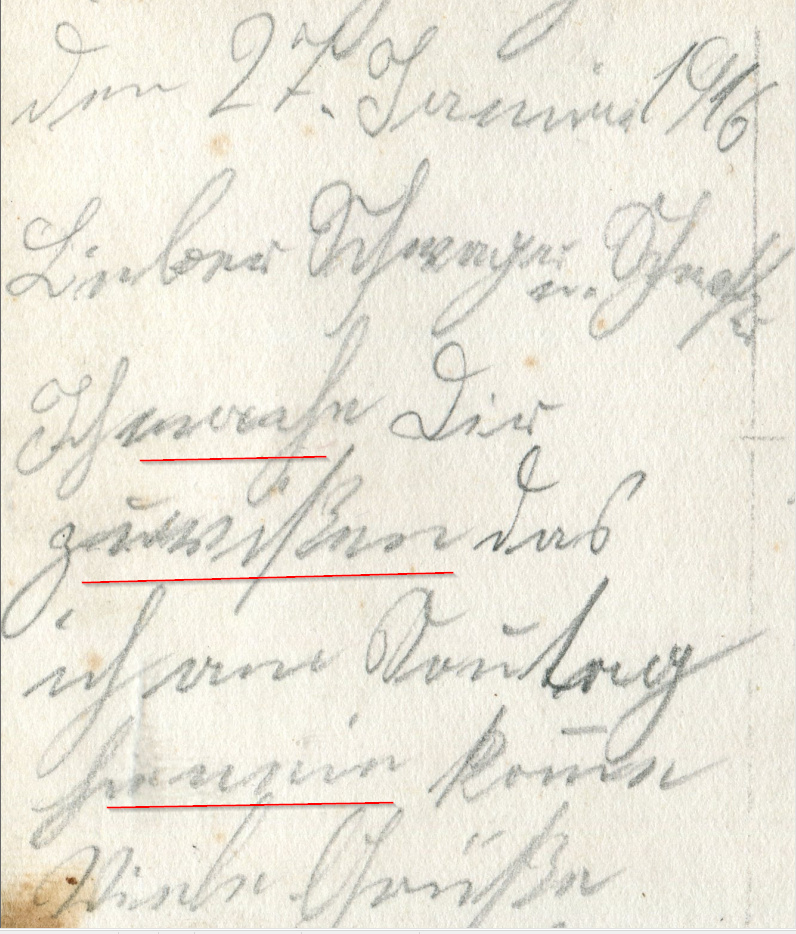 den 27. Januar 1916
Lieber Schwager u. Schwester
Ich mache Dir
zu wißen das
ich am Sontag
herrein kome
Viele Grüße